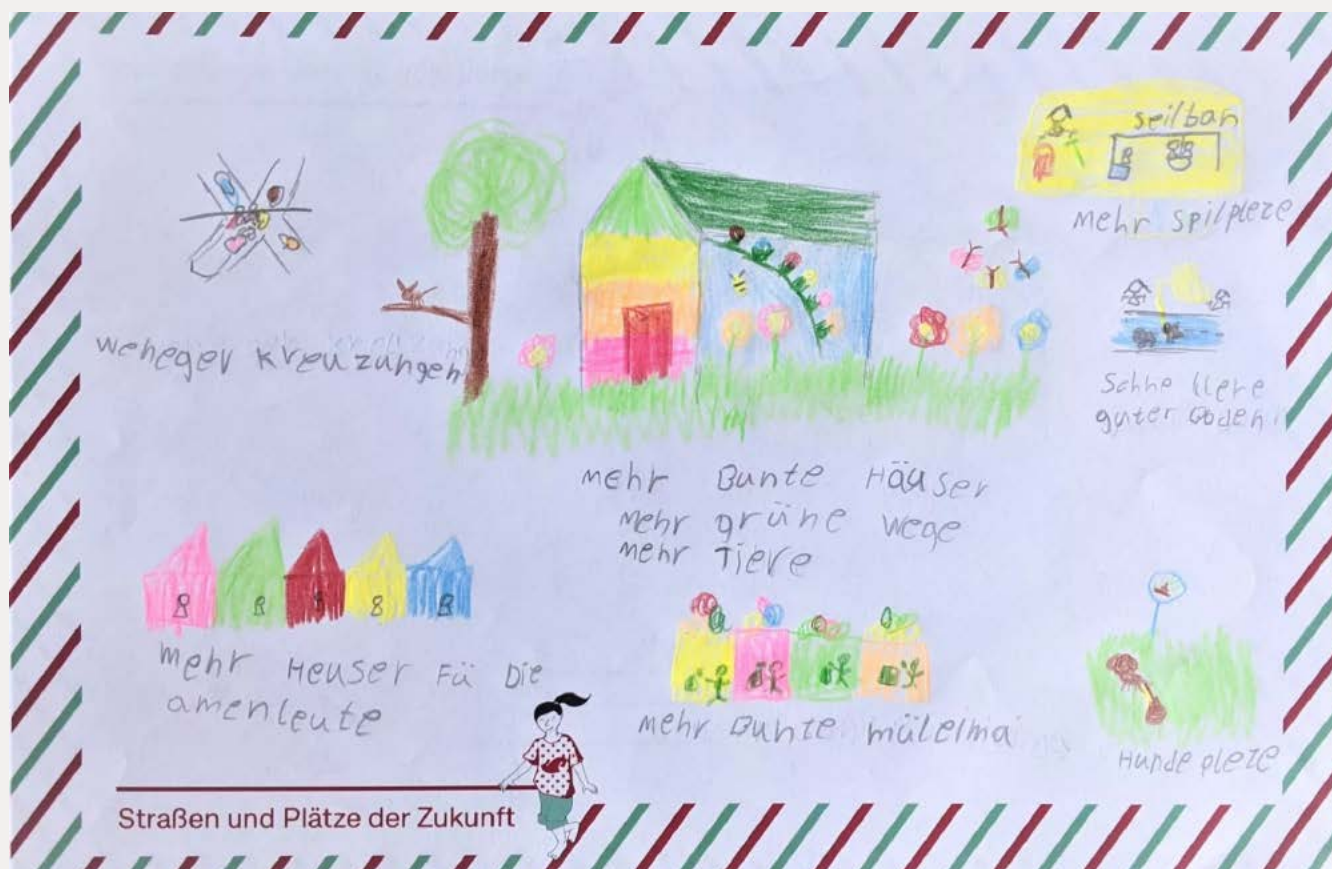 seilban
mehr spilpleze
weneger kreuzungen
Sohne tiere
guter Boden
mehr Bunte Häuser
mehr grüne wege
mehr Tiere
mehr Heuser Fü Die
amenleute
mehr Bunte mülelma
Hunde pleze
Straßen und Plätze der Zukunft